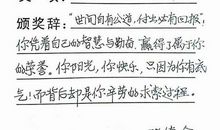 颁奖辞:“世间自有公道,付出必有回报!
你凭着自己的智慧与勤奋,赢得了属于你
的荣誉。你阳光,你快乐,只因为你有底
气!而背后却是你辛劳的求索过程。